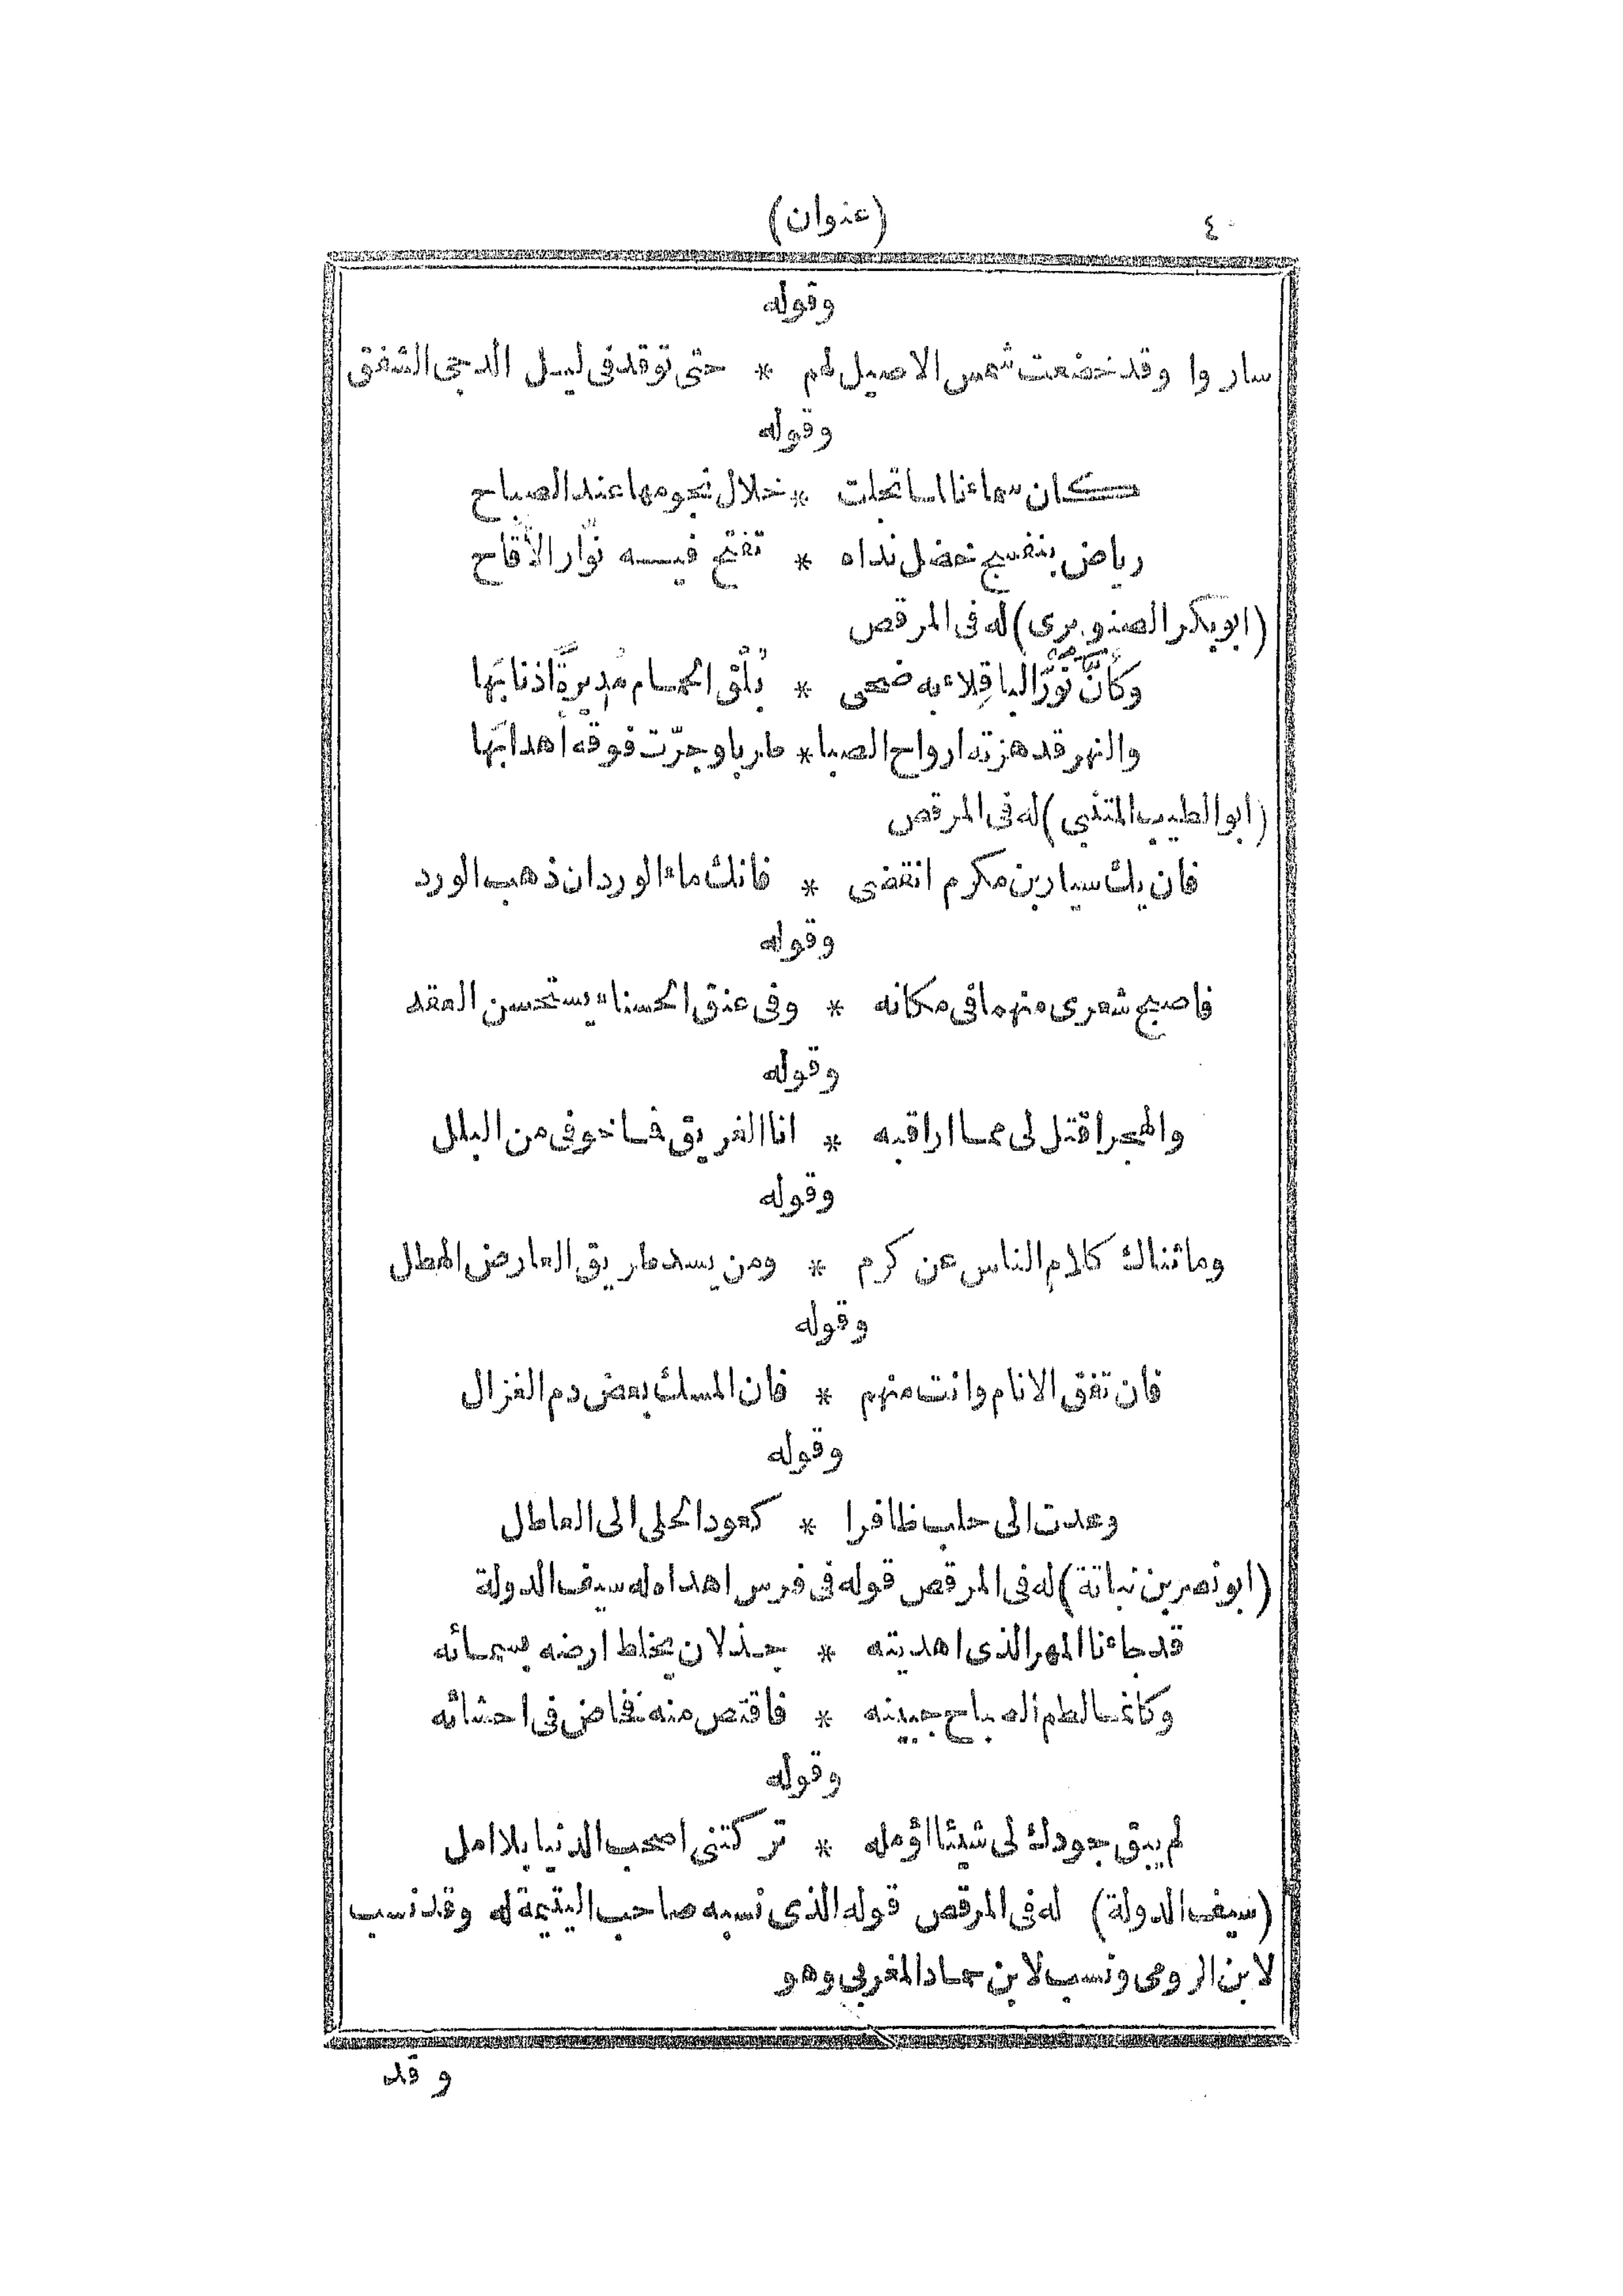 ٤٠ (عنوان)
وقوله
ساروا وقد خضعت شمس الاصيل لهم * حتى توقد فى ليل الدجى الشفق
وقوله
كان سماءنا لما تجلت * خلال نجومها عند الصباح
رياض بنفسج خضل نداه * تفتح فيه نوّار الأقاح
(ابو بكر الصنوبرى) له فى المرقص
وكأنَّ نَوْرَ الباقِلاء به ضحى * بُلْق الحمام مُديرةً اذنابَها
والنهر قد هزته ارواح الصبا * طربا وجرّت فوقه أهدابَها
(ابو الطيب المتنبى) له فى المرقص
فان يك سيار بن مكرم انقضى * فانك ماء الورد ان ذهب الورد
وقوله
فاصبح شعرى منهما فى مكانه * وفى عنق الحسناء يستحسن العقد
وقوله
والهجر اقتل لى مما اراقبه * انا الغريق فما خوفى من البلل
وقوله
وما ثناك كلام الناس عن كرم * ومن يسد طريق العارض الهطل
وقوله
فان تفق الانام وانت منهم * فان المسك بعض دم الغزال
وقوله
وعدت الى حلب ظافرا * كعود الحلى الى العاطال
(ابو نصر بن نباتة) له فى المرقص قوله فى فرس اهداه له سيف الدولة
قد جاءنا المهر الذى اهديته * جذلان يخلط ارضه بسمائه
وكانما لطم الصباح جبينه * فاقتص منه فخاض فى احشائه
وقوله
لم يبق جودك لى شيئا اؤمله * تركتنى اصحب الدنيا بلا امل
(سيف الدولة) له فى المرقص قوله الذى نسبه صاحب اليتيمة له وقد نسب
لابن الرومى ونسب لابن حماد المغربى وهو
وقد